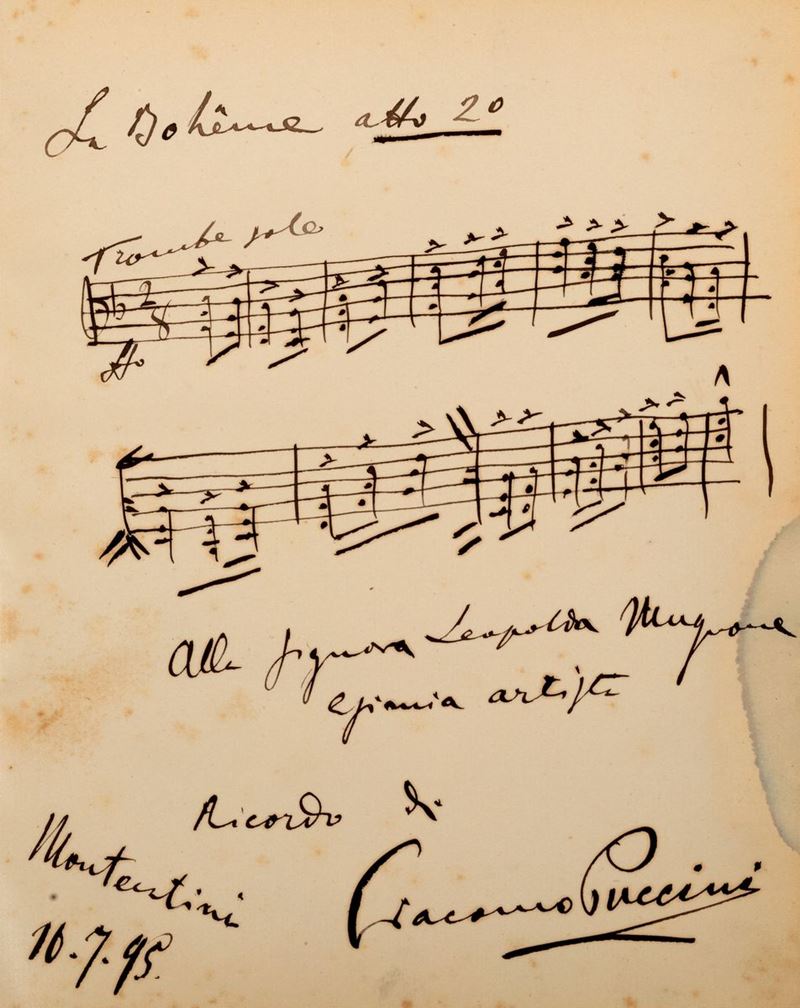 La Bohême atto 2º
Trombe sole
2
8
ffo
Alla signora Leopolda Mugnone
esimia artista
Ricordo di
Montecatini
Giacomo Puccini
10.7.95.